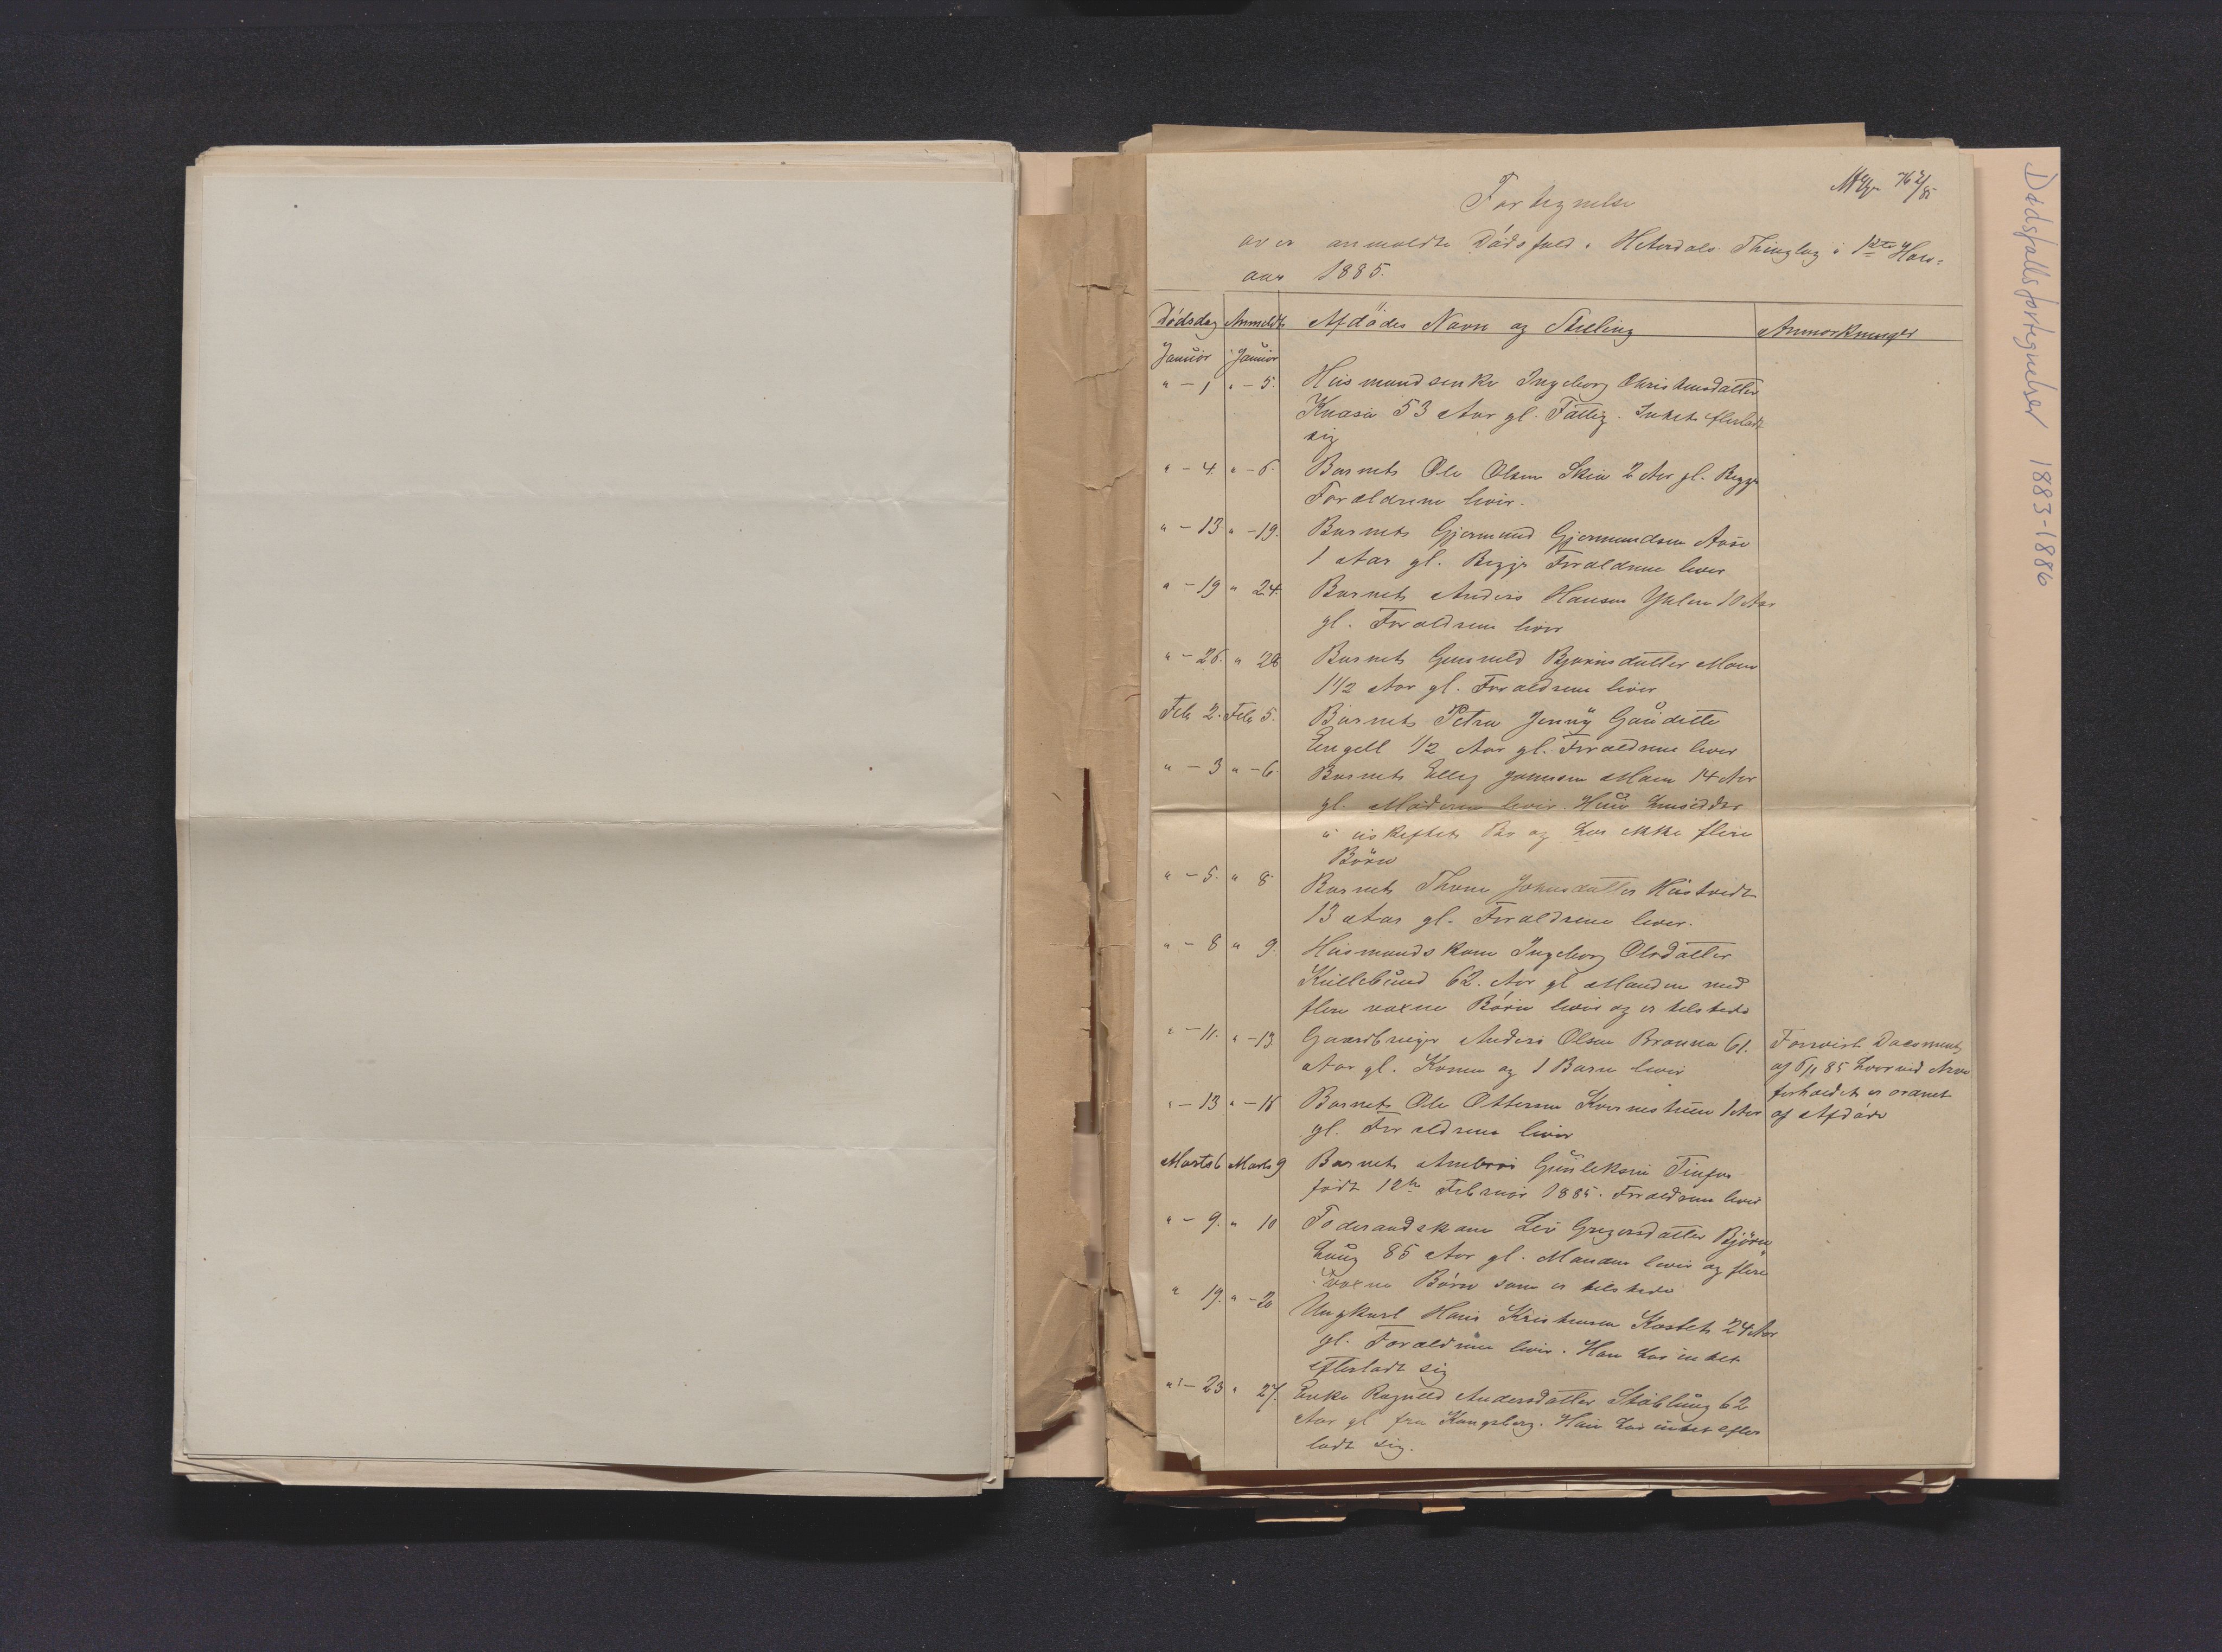 Fortegnelse
over anmeldte Dödsfald i Hiterdals Thinglag i 1ste Halv-
aar 1885.
Dödsdag Anmeldt Afdödes Navn og Stilling Anmærkninger
Januar Januar
" - 1 " - 5. Husmandsenke Ingeborg Christensdatter
53 Aar gl. Fattig. Intet efterladt
sig
" - 4. " - 6. Barnet Ole Olsen Skin 2 Aar gl. Begge
Forældrene lever.
" - 13 " - 19. Barnet Gjermund Gjermundsen
1 Aar gl. Begge Forældrene lever
" - 19 " 24. Barnet Anders Hansen 10 Aar
gl. Forældrene lever
" - 26. " 28 Barnet Gunnild Bjørnsdatter Moen
1 1/2 Aar gl. Forældrene lever
Feb 2. Feb 5. Barnet Petra Jenny
Engell 1/2 Aar gl. Forældrene lever
" - 3 " - 6. Barnet Ellef Jonnsen Moen 14 Aar
gl. Moderen lever. Hun hensidder
i uskiftet Bo og har ikke flere
Börn
" - 5. " 8 Barnet Thone Johnsdatter Haatvedt
13 Aar gl. Forældrene lever.
" - 8 " 9. Husmandskone Ingeborg Olsdatter
62. Aar gl Manden med
flere voxne Börn lever og er tilstede
" - 11. " - 13 Gaardbruger Anders Olsen 61. Forevist Document
Aar gl. Konen og 1 Barn lever af 6/11 85 hvorved Arve
forholdet er ordnet
" - 13 " - 18 Barnet Ole Ottersen 1 Aar af Afdöde
gl. Forældrene lever
Marts 6 Marts 9 Barnet Ambros Gunleksen Tinfos
födt 12te Februar 1885. Forældrene lever
" - 9. " 10 Föderaadskone Liv Gregersdatter Björn
haug 85 Aar gl. Manden lever og flere
voxne Börn som er tilstede
" 19. " - 20 Ungkarl Hans Kristensen Kastet 24 Aar
gl. Forældrene lever. Han har intet
efterladt sig
" - 23 " 27. Enke Ragnild Andersdatter 62
Aar gl fra Kongsberg. Hun har intet efter
ladt sig.
Dødsfallsfortegnelser 1883-1886